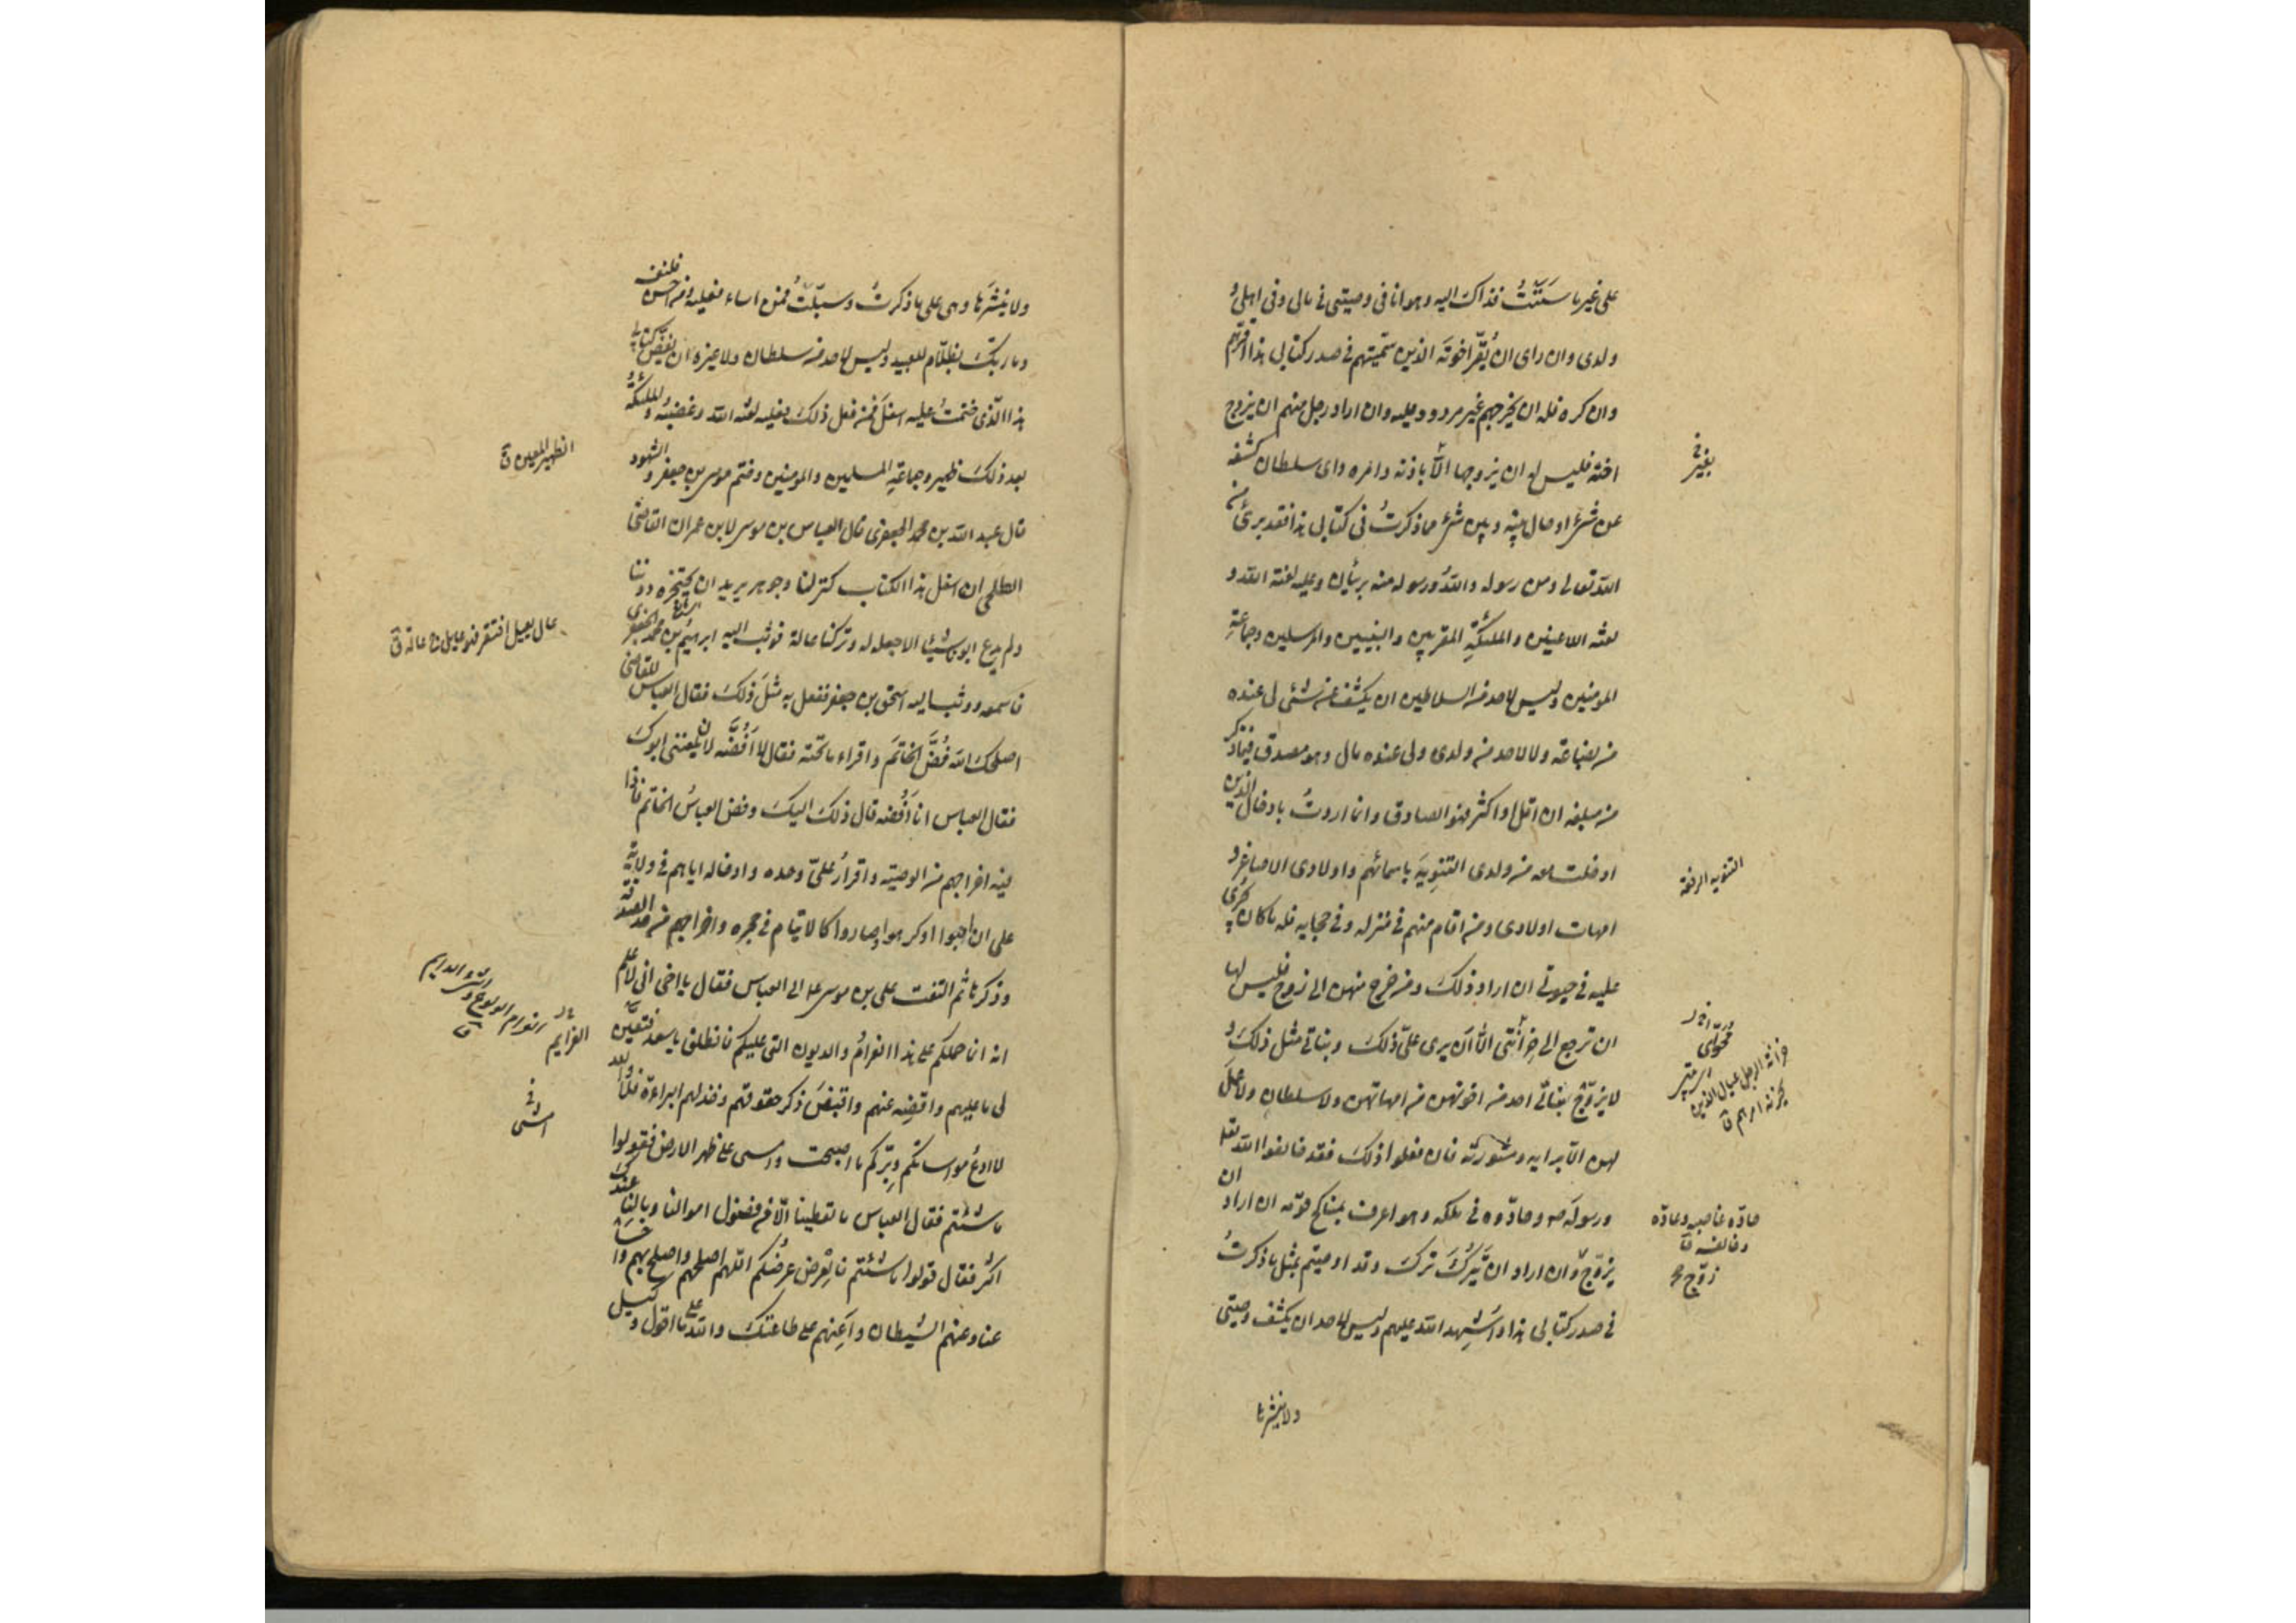 على غير ما سَنَنْتُ فذاك اليه وهو انا فى وصيتى فى مالى وفى اهلى و
ولدى وان راى ان يُقرّ اخوتَه الذين سمّيتهم فى صدر كتابى هذا اقرّهم
وان كره فله ان يخرجهم غير مردود عليه وان اراد رجل منهم ان يزوج
اخته فليس له ان يزوجها الّا باذنه وامره واى سلطان كشفه
عن شئ او حال بينه وبين شئ مما ذكرتُ فى كتابى هذا فقد برئ من
الله تعالى ومن رسوله واللهُ ورسوله منه بريئان وعليه لعنة الله و
لعنة اللاعنين والملئكةِ المقربين والنبيين والمرسلين وجماعةِ
المومنين وليس لاحد من السلاطين ان يكشفه عن شئ لى عنده
من بضاعة ولا لاحد من ولدى ولى عنده مال وهو مصدق فيما ذكر
من مبلغه ان اقلّ او اكثر فهو الصادق وانما اردتُ بادخال الذين
ادخلت معه من ولدى التنويهَ باسمائهم واولادى الاصاغر و
امهات اولادى ومن اقام منهم فى منزله وفى حجابه فله ما كان يجرى
عليه فى حيوتى ان اراد ذلك ومن خرج منهن الى زوج فليس لها
ان ترجع الى خزانتى الّا ان يرى علىّ ذلك وبناتى مثل ذلك و
لا يزوّج بناتى احد من اخوتهن من امهاتهن ولا سلطان ولا عمل
لهن الّا برايه ومشورته فان فعلوا ذلك فقد خالفوا الله تعا
ورسوله ص وحادّوه فى ملكه وهو اعرف بمناكح قومه ان اراد ان
يزوّج زوّج وان اراد ان يَتركَ تركَ وقد اوصيتهم بمثل ما ذكرتُ
فى صدر كتابى هذا واُشهِد الله عليهم وليس لاحد ان يكشف وصيتى
ولا ينشرها
بغير
التنويه الرفعة
محواى
خزانة الرجل عياله الذين
يحزنه امرهم ق
حادّه غاضبه وعاداه
وخالفه ق
زوّج
ولا ينشرَها وهى على ما ذكرتُ وسبّلتُ فمن اساء فعليه ومن احسن فلنفسه
وما ربّك بظلّام للعبيد وليس لاحد من سلطان ولا غيره ان يفضّ كتابى
هذا الّذى ختمتُ عليه اسفلَ فمن فعل ذلك فعليه لعنة الله وغضبُه والملئكةُ
بعد ذلك ظهير وجماعةِ المسلمين والمومنين وختم موسى بن جعفر والشهود
قال عبد الله بن محمد الجعفرى قال العباس بن موسى لابن عمران القاضى
الطلحى ان اسفل هذا الكتاب كنز لنا وجوهر يريد ان يحتجزه دوننا
ولم يدع ابونا شيئا الا جعله له وتركنا عالة فوثب اليه ابراهيم بن محمد الجعفرى
فاسمعه ووثب اليه اسحق بن جعفر ففعل به مثلَ ذلك فقال العباس للقاضى
اصلحك الله فُضَّ الخاتَم واقراء ما تحته فقال لا اَفُضّه لا يلعننى ابوك
فقال العباس انا اَفُضّه قال ذلك اليك وفض العباسُ الخاتم فاذا
فيه اخراجهم من الوصية واقرارُ علىّ وحده وادخاله اياهم فى ولاية
على ان احبوا او كرهوا وصاروا كالايتام فى حجره واخراجهم من حد الصدقة
وذكرها ثم التفت على بن موسى ع الى العباس فقال يا اخى انى لاعلم
انه انما حملكم على هذا الغرامُ والديون التى عليكم فانطلق يا سعد فتعيّن
لى ما عليهم واقضِه عنهم واقبضَ ذكر حقوقهم وخذ لهم البراءة فلا والله
لا ادعُ مواساتكم وبرّكم ما اصبحت وامسى على ظهر الارض فقولوا
ما شئتم فقال العباس ما تعطينا الّا من فضول اموالنا وما لنا عندك
اكثر فقال قولوا ما شئتم فالعِرْض عِرضُكم اللهم اصلحهم واصلح بهم واخسأ
عنا وعنهم الشيطان واَعِنهم على طاعتك والله على ما اقول وكيل
الظهير المعين ق
عال يعيل افتقر فهو عايل ج عالة ق
الغرايم
امشى